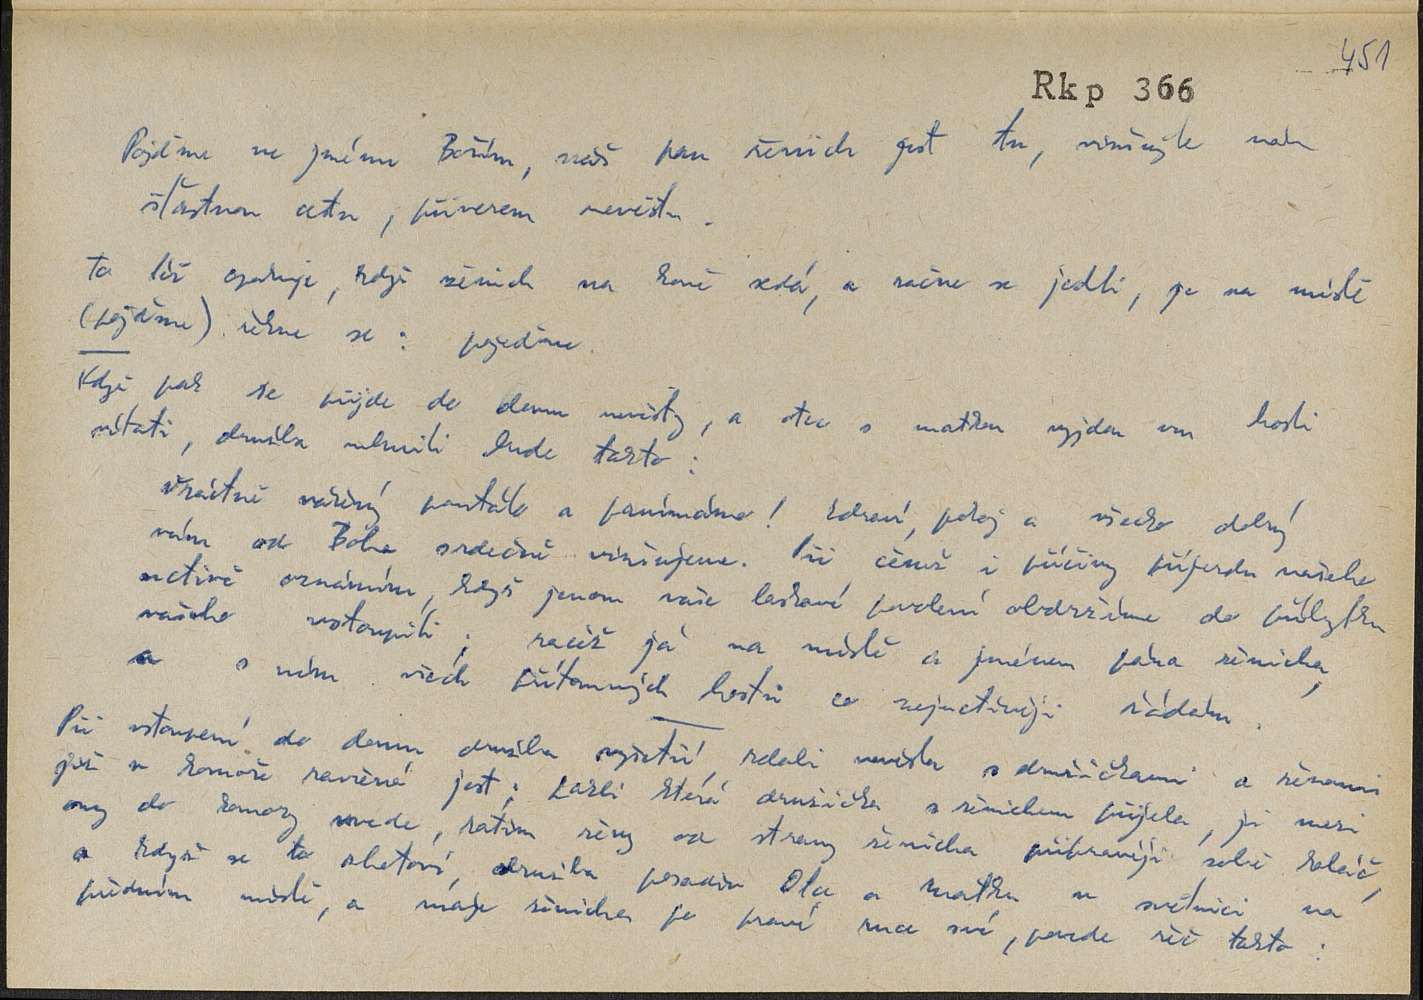 451
Rkp 366
Pojďme ve jménu Božím, náš pan ženich gest tu, vinšujte nám
šťastnou cestu, přiverem nevěstu.
to též opakuje, když ženich na koně sedá, a začne se jedli, je na místě
(pojďme) řekne se: pojedme.
Když pak se přijde do domu nevěsty, a otec s matkou vyjdou ven hosti
vítati, družba mluviti bude takto:
vzáctně vážený pantáto a panímámo! zdraví, pokoj a všecko dobrý
vám od Boha srdečně vinšujeme. Při čemž i příčiny příjezdu našeho
uctivě oznámím, když jenom vaše laskavé povolení obdržíme do příbytku
vašeho vstoupiti; začež já na místě a jménem pána ženicha,
a s ním všech přítomných hostů co nejuctivěji žádám.
Při vstoupení do domu družba vyjistí zdali nevěsta s družičkami a ženami
již v komoře zavřená jest; každá která družička s ženichem přijela, ji mezi
ony do komory uvede, zatím ženy od strany ženicha připravují sobě koláč,
a když se to zhotoví, družba posadiv Otce a Matku v světnici na
předním místě, a maje ženicha po pravé ruce své, povede řeč takto: